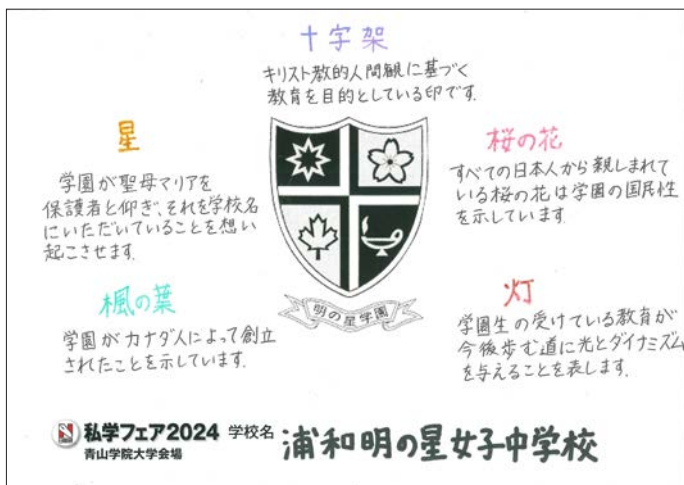 十字架
キリスト教的人間観に基づく
教育を目的としている印です.
星
学園が聖母マリアを
保護者と仰ぎ、それを学校名
にいただいていることを想い
起こさせます.
桜の花
すべての日本人から親しまれて
いる桜の花は学園の国民性
を示しています.
楓の葉
学園がカナダ人によって創立
されたことを示しています.
灯
学園生の受けている教育が
今後歩む道に光とダイナミズム
を与えることを表します.
明の星学園
私学フェア2024 学校名 浦和明の星女子中学校
青山学院大学会場